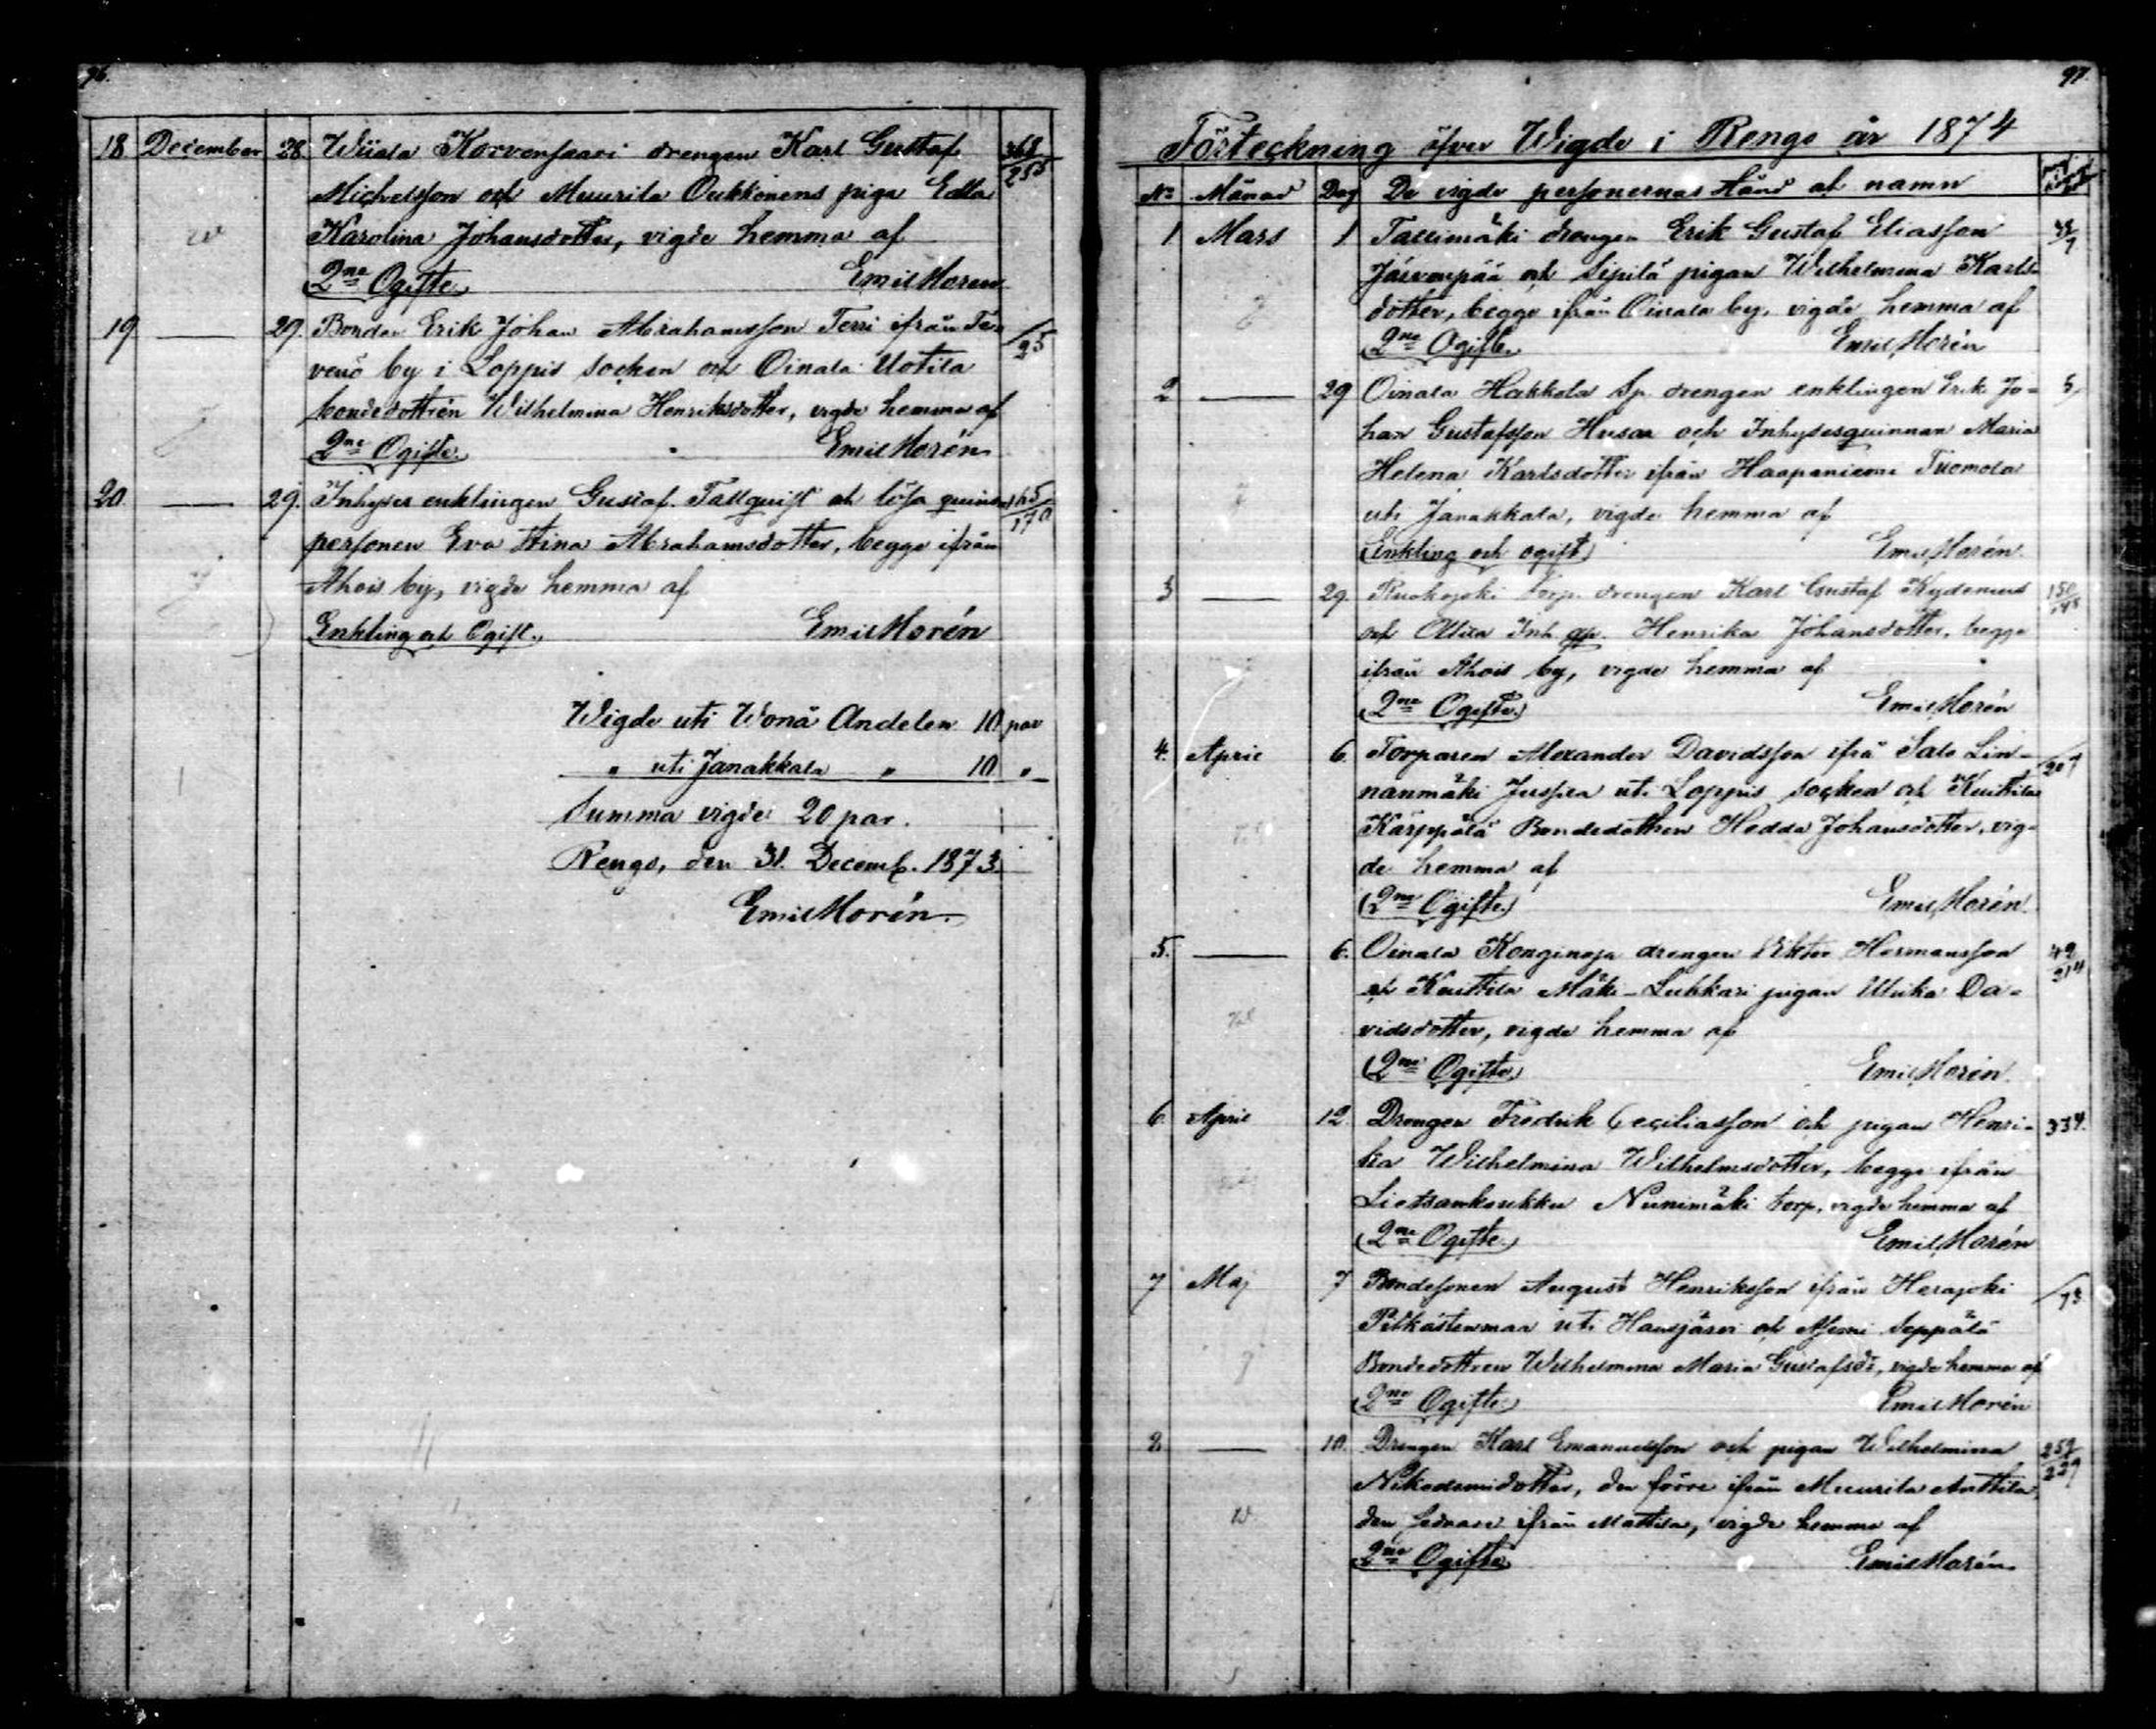 96.
18 December 28. Wiiala Korvensaari drengen Karl Gustaf 368/255
Michelsson och Muurila Oukkonens piga Edla
Karolina Johansdotter, vigde hemma af
2ne Ogifte. Emil Morén
19 — 29. Bonden Erik Johan Abrahamsson Terri ifrån Te- /25
venö by i Loppis socken och Oinala Uotila
bondedottren Wilhelmina Henriksdotter, vigde hemma af
2ne Ogifte. Emil Morén
20 — 29. Inhyses enklingen Gustaf Tallquist och lösa quinns 165/170
personen Eva Stina Abrahamsdotter, begge ifrån
Ahois by, vigde hemma af
Enkling och Ogift. Emil Morén
Wigde uti Wonå Andelen 10 par
" uti Janakkala " 10 "
Summa vigde 20 par.
Rengo, den 31. Decemb. 1873.
Emil Morén.
97.
Förteckning öfver Wigde i Rengo år 1874
No Månad Dag De vigde personernas stånd och namn
1 Mars 1 Tallimäki drengen Erik Gustaf Eliasson 42/7
Järvenpää och Sipilä pigan Wilhelmina Karls-
dotter, begge ifrån Oinala by, vigde hemma af
2ne Ogifte. Emil Morén
2 — 29 Oinala Hakkola Sp. drengen enklingen Erik Jo- 5/
han Gustafsson Husar och Inhysesquinnan Maria
Helena Karlsdotter ifrån Haapaniemi Tuomola
uti Janakkala, vigde hemma af
(Enkling och ogift) Emil Morén.
3 — 29. Ruokojoki Torp. drengen Karl Gustaf Kydenius 150/
och Ollila Inh. qp. Henrika Johansdotter, begge
ifrån Ahois by, vigde hemma af
(2ne Ogifte.) Emil Morén
4. April 6. Torparen Alexander Davidsson ifrå Salo Lin- /207
nanmäki Jussila uti Loppis socken och Kuittila
Kärppälä Bondedottren Hedda Johansdotter, vig-
de hemma af
(2ne Ogifte.) Emil Morén.
5. — 6. Oinala Konginoja drengen Viktor Hermansson 49/214
och Kuittila Mäki-Luhkari pigan Ulrika Da-
vidsdotter, vigde hemma af
(2ne Ogifte.) Emil Morén.
6 April 12. Drengen Fredrik Ceciliasson och pigan Henri- 334.
ka Wilhelmina Wilhelmsdotter, begge ifrån
Lietsankoukku Niinimäki torp, vigde hemma af
(2ne Ogifte.) Emil Morén
7 Maj 7 Bondesonen August Henriksson ifrån Herajoki /73
Pitkästenmaa uti Hausjärvi och Nummi Seppälä
Bondedottren Wilhelmina Maria Gustafsdr, vigde hemma af
(2ne Ogifte.) Emil Morén
8 — 10. Drengen Karl Emanuelsson och pigan Wilhelmina 259/229
Nikodemidotter, den förre ifrån Muurila Anttila,
den sednare ifrån Mattila, vigde hemma af
2ne Ogifte Emil Morén